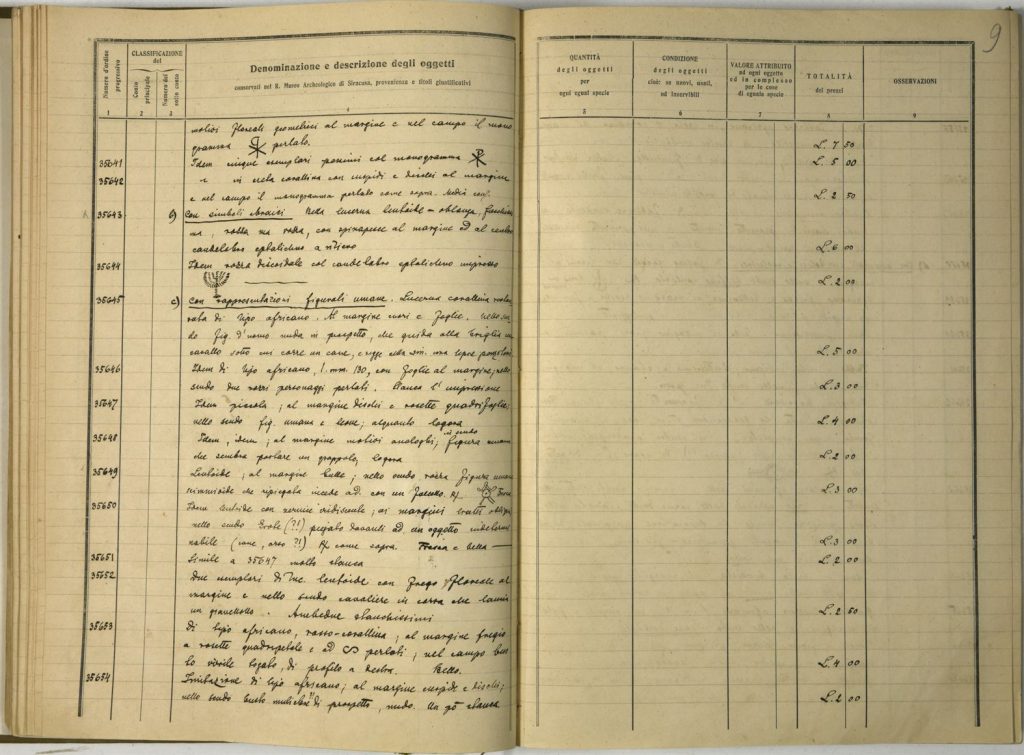 9
Numero d'ordine progressivo
CLASSIFICAZIONE del
Conto principale
Numero del sotto conto
Denominazione e descrizione degli oggetti
conservati nel R. Museo Archeologico di Siracusa, provenienza e titoli giustificativi
QUANTITÀ degli oggetti per ogni egual specie
CONDIZIONE degli oggetti cioè: se nuovi, usati, od inservibili
VALORE ATTRIBUITO ad ogni oggetto ed in complesso per le cose di eguale specie
TOTALITÀ dei prezzi
OSSERVAZIONI
1 2 3 4 5 6 7 8 9
motivi floreali geometrici al margine e nel campo il mono
gramma perlato. L. 7 50
35641 Idem cinque esemplari col monogramma L. 5 00
35642 " in creta corallina con cuspidi e dischi al margine
e nel campo il monogramma perlato come sopra. L. 2 50
35643 b) Con simboli Bella lucerna lentoide - oblunga,
ma, rozza, con al margine ed al centro
candelabro L. 6 00
35644 Idem rozza discoidale col candelabro impresso
L. 2 00
35645 c) Con rappresentazioni figurali umane. Lucerna corallina
di tipo africano. Al margine cuori e foglie.
do fig. d'uomo nuda in prospetto, che guida alla briglia un
cavallo sotto cui corre un cane, e regge nella sin. una lepre L. 5 00
35646 Idem di tipo africano, l. mm. 130, con foglie al margine; nello
scudo due rozzi personaggi perlati. Stanca l'impressione L. 3 00
35647 Idem piccola; al margine dischi e rosette quadrifoglie;
nello scudo fig. umana e leone; alquanto logora L. 4 00
35648 Idem, idem; al margine motivi analoghi; figura umana
che sembra portare un grappolo; logora L. 2 00
35649 Lentoide; al margine bulle; nello scudo rozza figura umana
incede ad. con un L. 3 00
35650 Idem lentoide con vernice iridescente; ai margini tratti obliqui
nello scudo (?!) piegato davanti ad un oggetto
nabile (cane, orso ?!) come sopra. Fresca e bella L. 3 00
35651 Simile a 35647 molto stanca L. 2 00
35652 Due esemplari di luc. lentoide con fregio floreale al
margine e nello scudo cavaliere in corsa che lancia
un giavellotto. Ambedue stanchissimi L. 2 50
35653 Di tipo africano, rosso-corallina; al margine fregio
a rosette quadripetale e ad S perlati; nel campo bus
to virile togato, di profilo a destra. Bello. L. 4 00
35654 Imitazione di tipo africano; al margine cuspidi e dischi;
nello scudo busto di prospetto, nudo. Un pò stanca L. 2 00